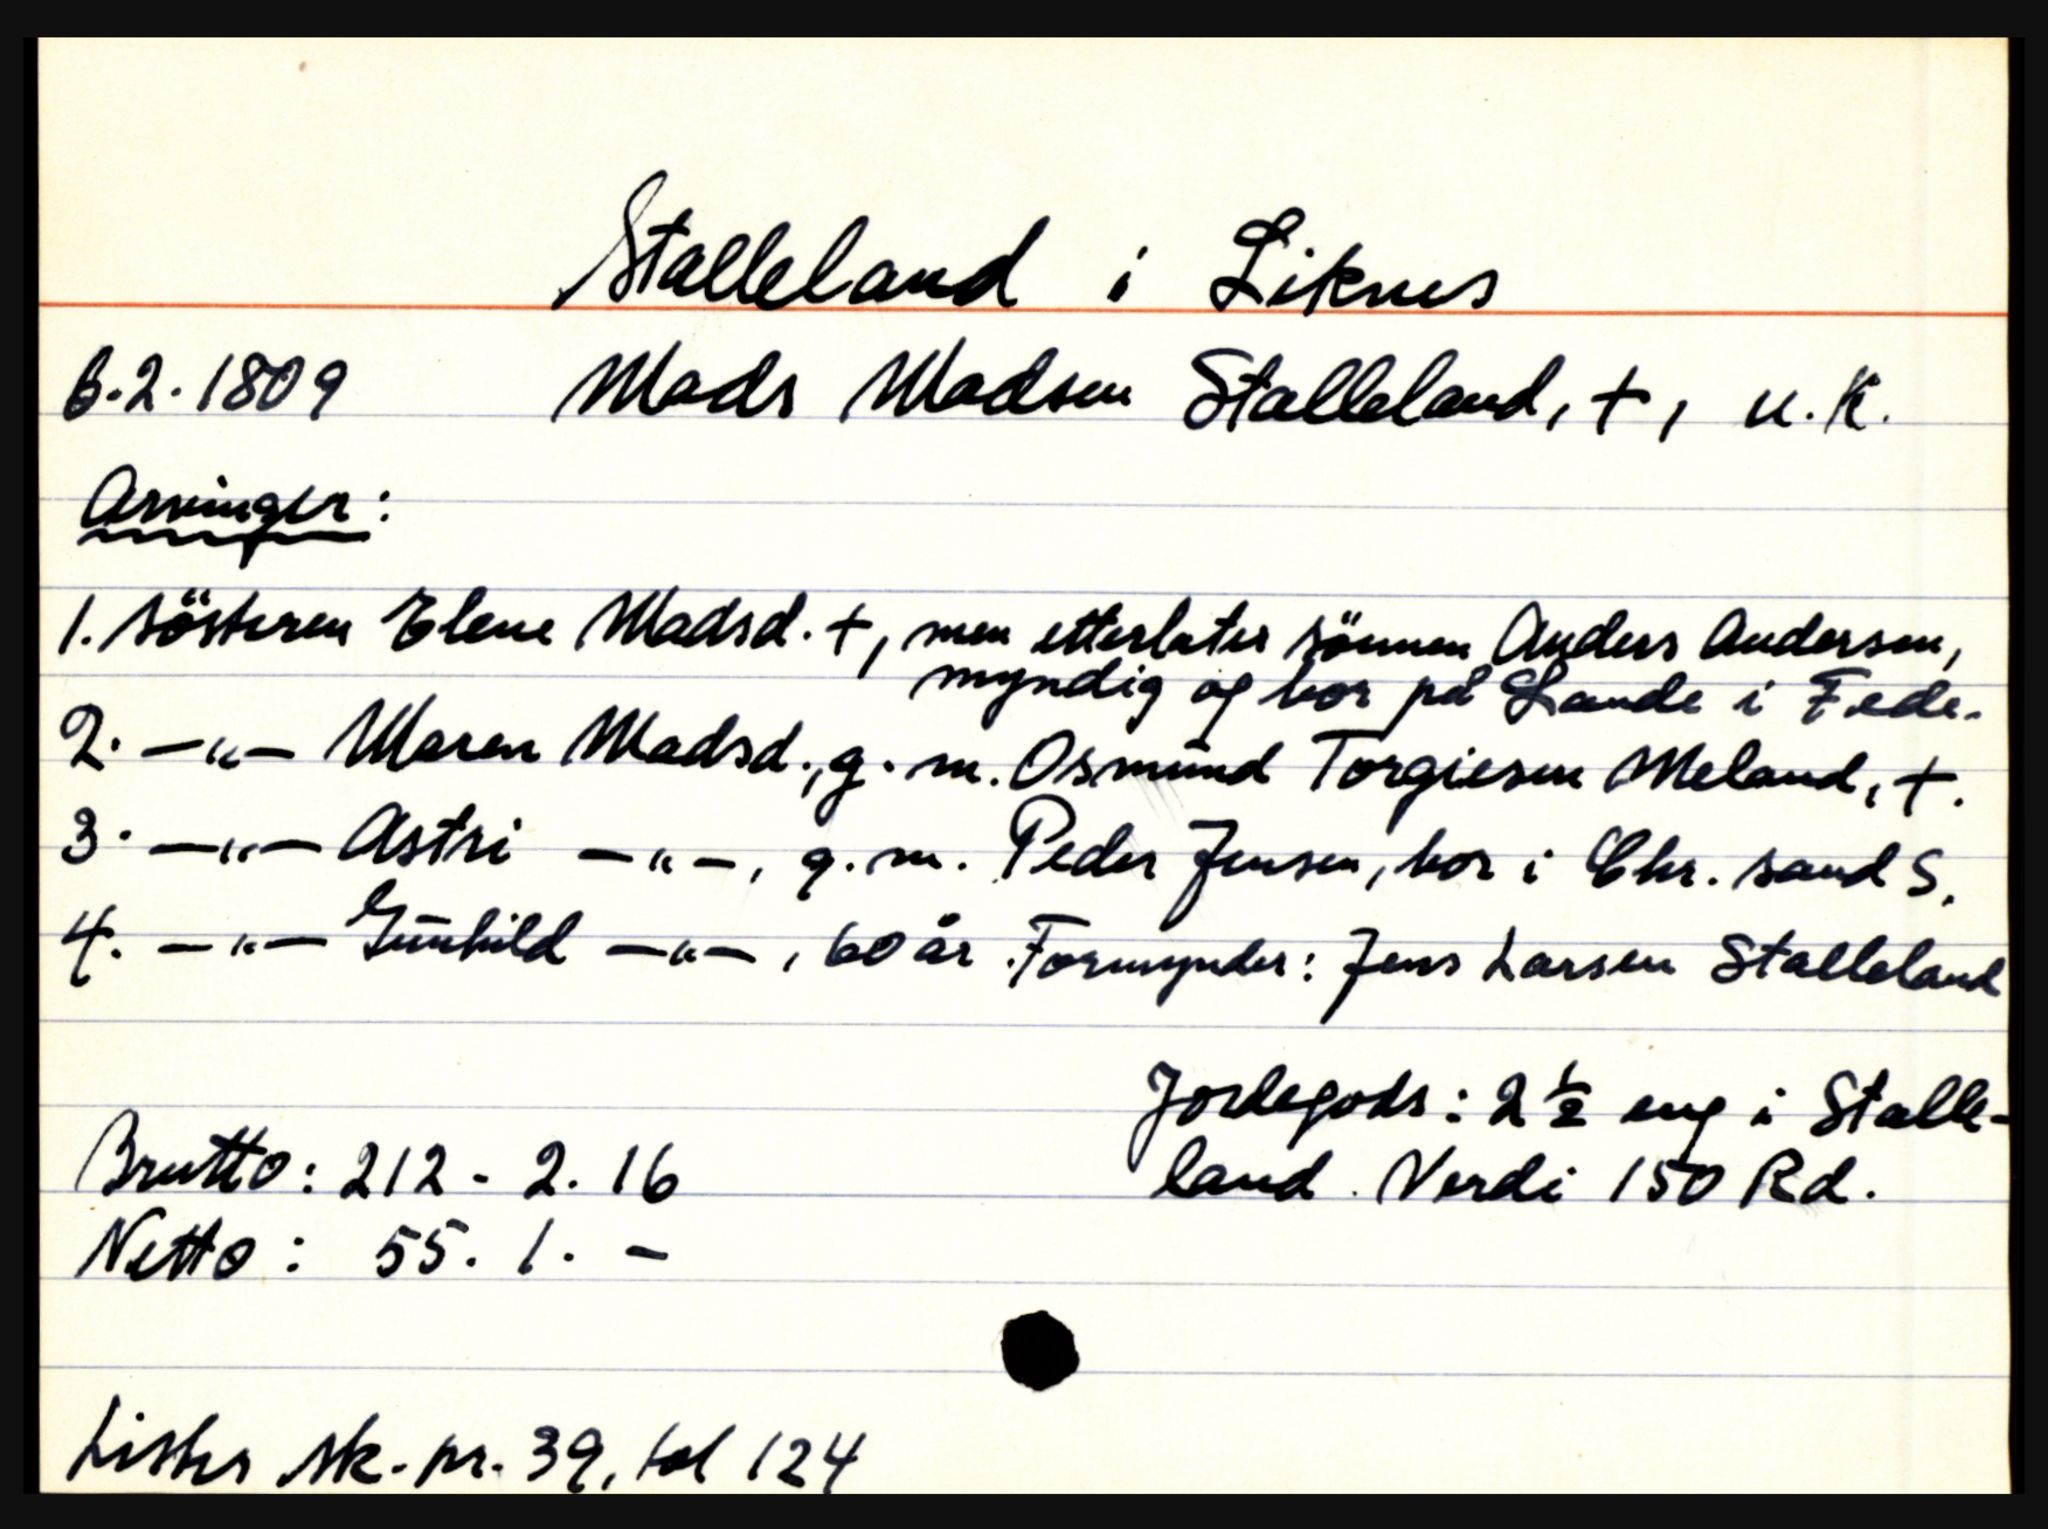 Stalleland i Liknes
6.2.1809 Mads Madsen Stalleland, +, u.k.
Arvinger:
1. Söstren Elene Madsd. +, men etterlater sönnen Anders Andersen,
myndig og bor på Lande i Fede.
2. —"— Maren Madsd., g. m. Osmund Torgiesen Meland, +.
3. —"— Astri —"—, g. m. Peder Jensen, bor i Chr. sand S.
4. —"— Gunhild —"—, 60 år. Formynder: Jens Larsen Stalleland
Jordegods: 2 ½ eng i Stalle-
land. Verdi 150 Rd.
Brutto: 212 - 2. 16
Netto: 55. 1. -
Lister sk. pr. 39, fol 124